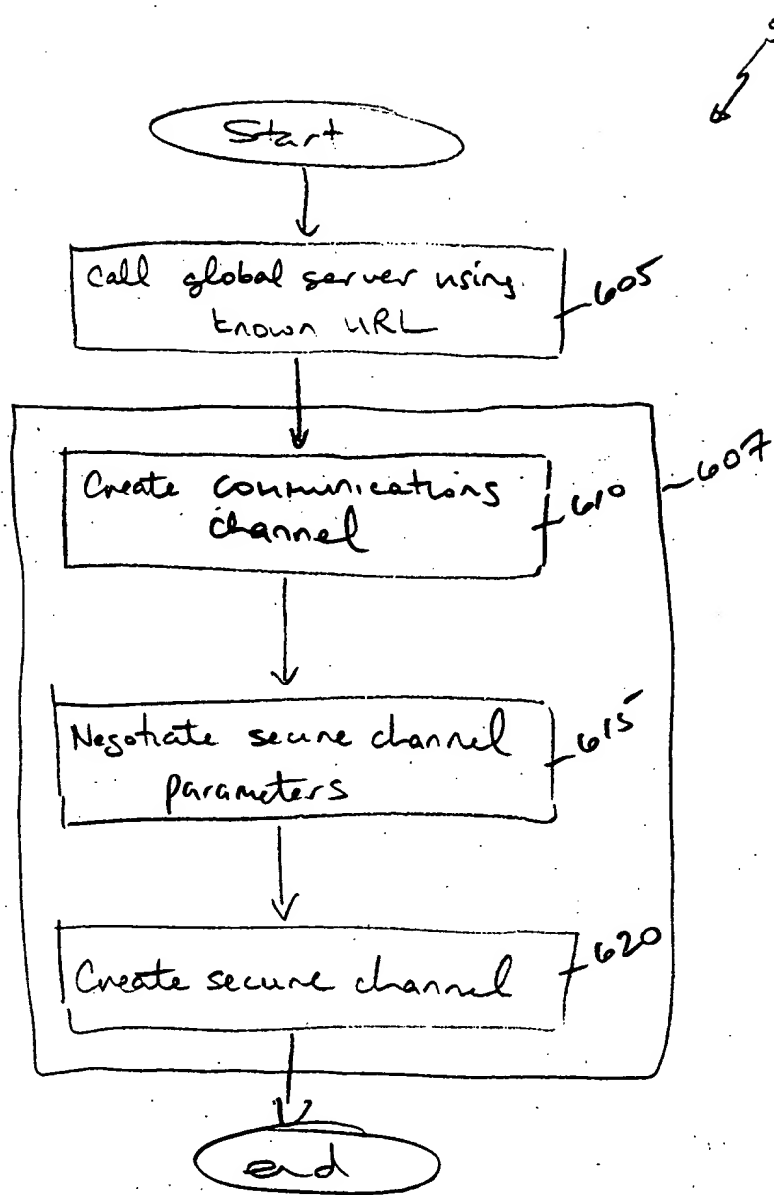 Start
Call global server using
known URL
605
607
Create communications
channel
610
Negotiate secure channel
parameters
615
Create secure channel
620
end